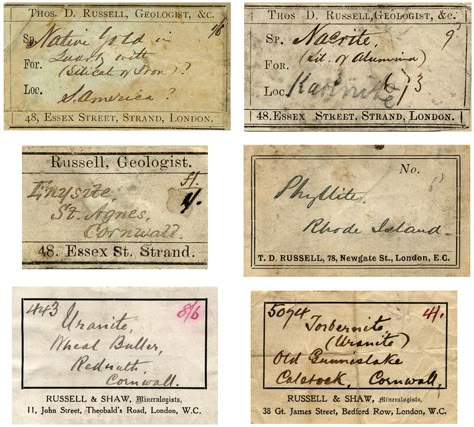 THOS D. RUSSELL, GEOLOGIST, &C.
SP. Native Gold in
FOR. Quartz with
(Silicate of Iron)?
LOC. S. America?
48, ESSEX STREET, STRAND, LONDON.
THOS D. RUSSELL, GEOLOGIST, &C.
SP. Nacrite,
FOR. (Sil. of Alumina)
LOC.
48, ESSEX STREET, STRAND, LONDON.
Russell, Geologist.
Enysite,
St. Agnes,
Cornwall.
48, Essex St. Strand.
No.
Phyllite.
Rhode Island.
T. D. RUSSELL, 78, Newgate St., London, E.C.
443 5/6
Uranite,
Wheal Buller,
Redruth,
Cornwall.
RUSSELL & SHAW, Mineralogists,
11, John Street, Theobald's Road, London, W.C.
5094 4/.
Torbernite
(Uranite)
Old Gunnislake
Calstock, Cornwall.
RUSSELL & SHAW, Mineralogists,
38 Gt. James Street, Bedford Row, London, W.C.